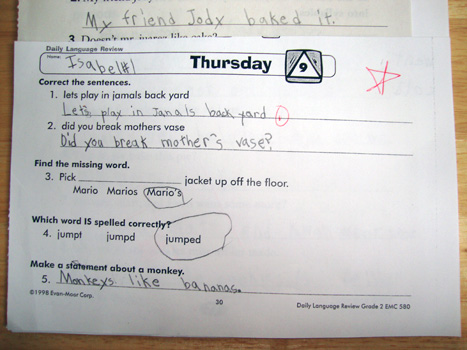 My friend Jody baked it.
3. Doesn't mr. juarez like cake?
Daily Language Review
Name: Isabel #1
Thursday
9
Correct the sentences.
1. lets play in jamals back yard
Let's play in Jamals back yard.
2. did you break mothers vase
Did you break mother's vase?
Find the missing word.
3. Pick ________ jacket up off the floor.
Mario Marios Mario's
Which word IS spelled correctly?
4. jumpt jumpd jumped
Make a statement about a monkey.
5. Monkeys like bananas.
©1998 Evan-Moor Corp.
30
Daily Language Review Grade 2 EMC 580